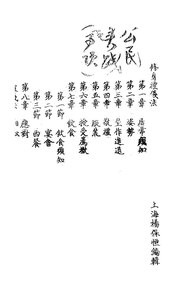 公民
修身禮儀法
第一章 居常須知
第二章 姿勢
第三章 坐作進退
第四章 敬禮
第五章
第六章 授受薦徹
第七章 飲食
第一節 飲食須知
第二節 宴會
第三節 西餐
第八章 應對
上海楊保恒編輯